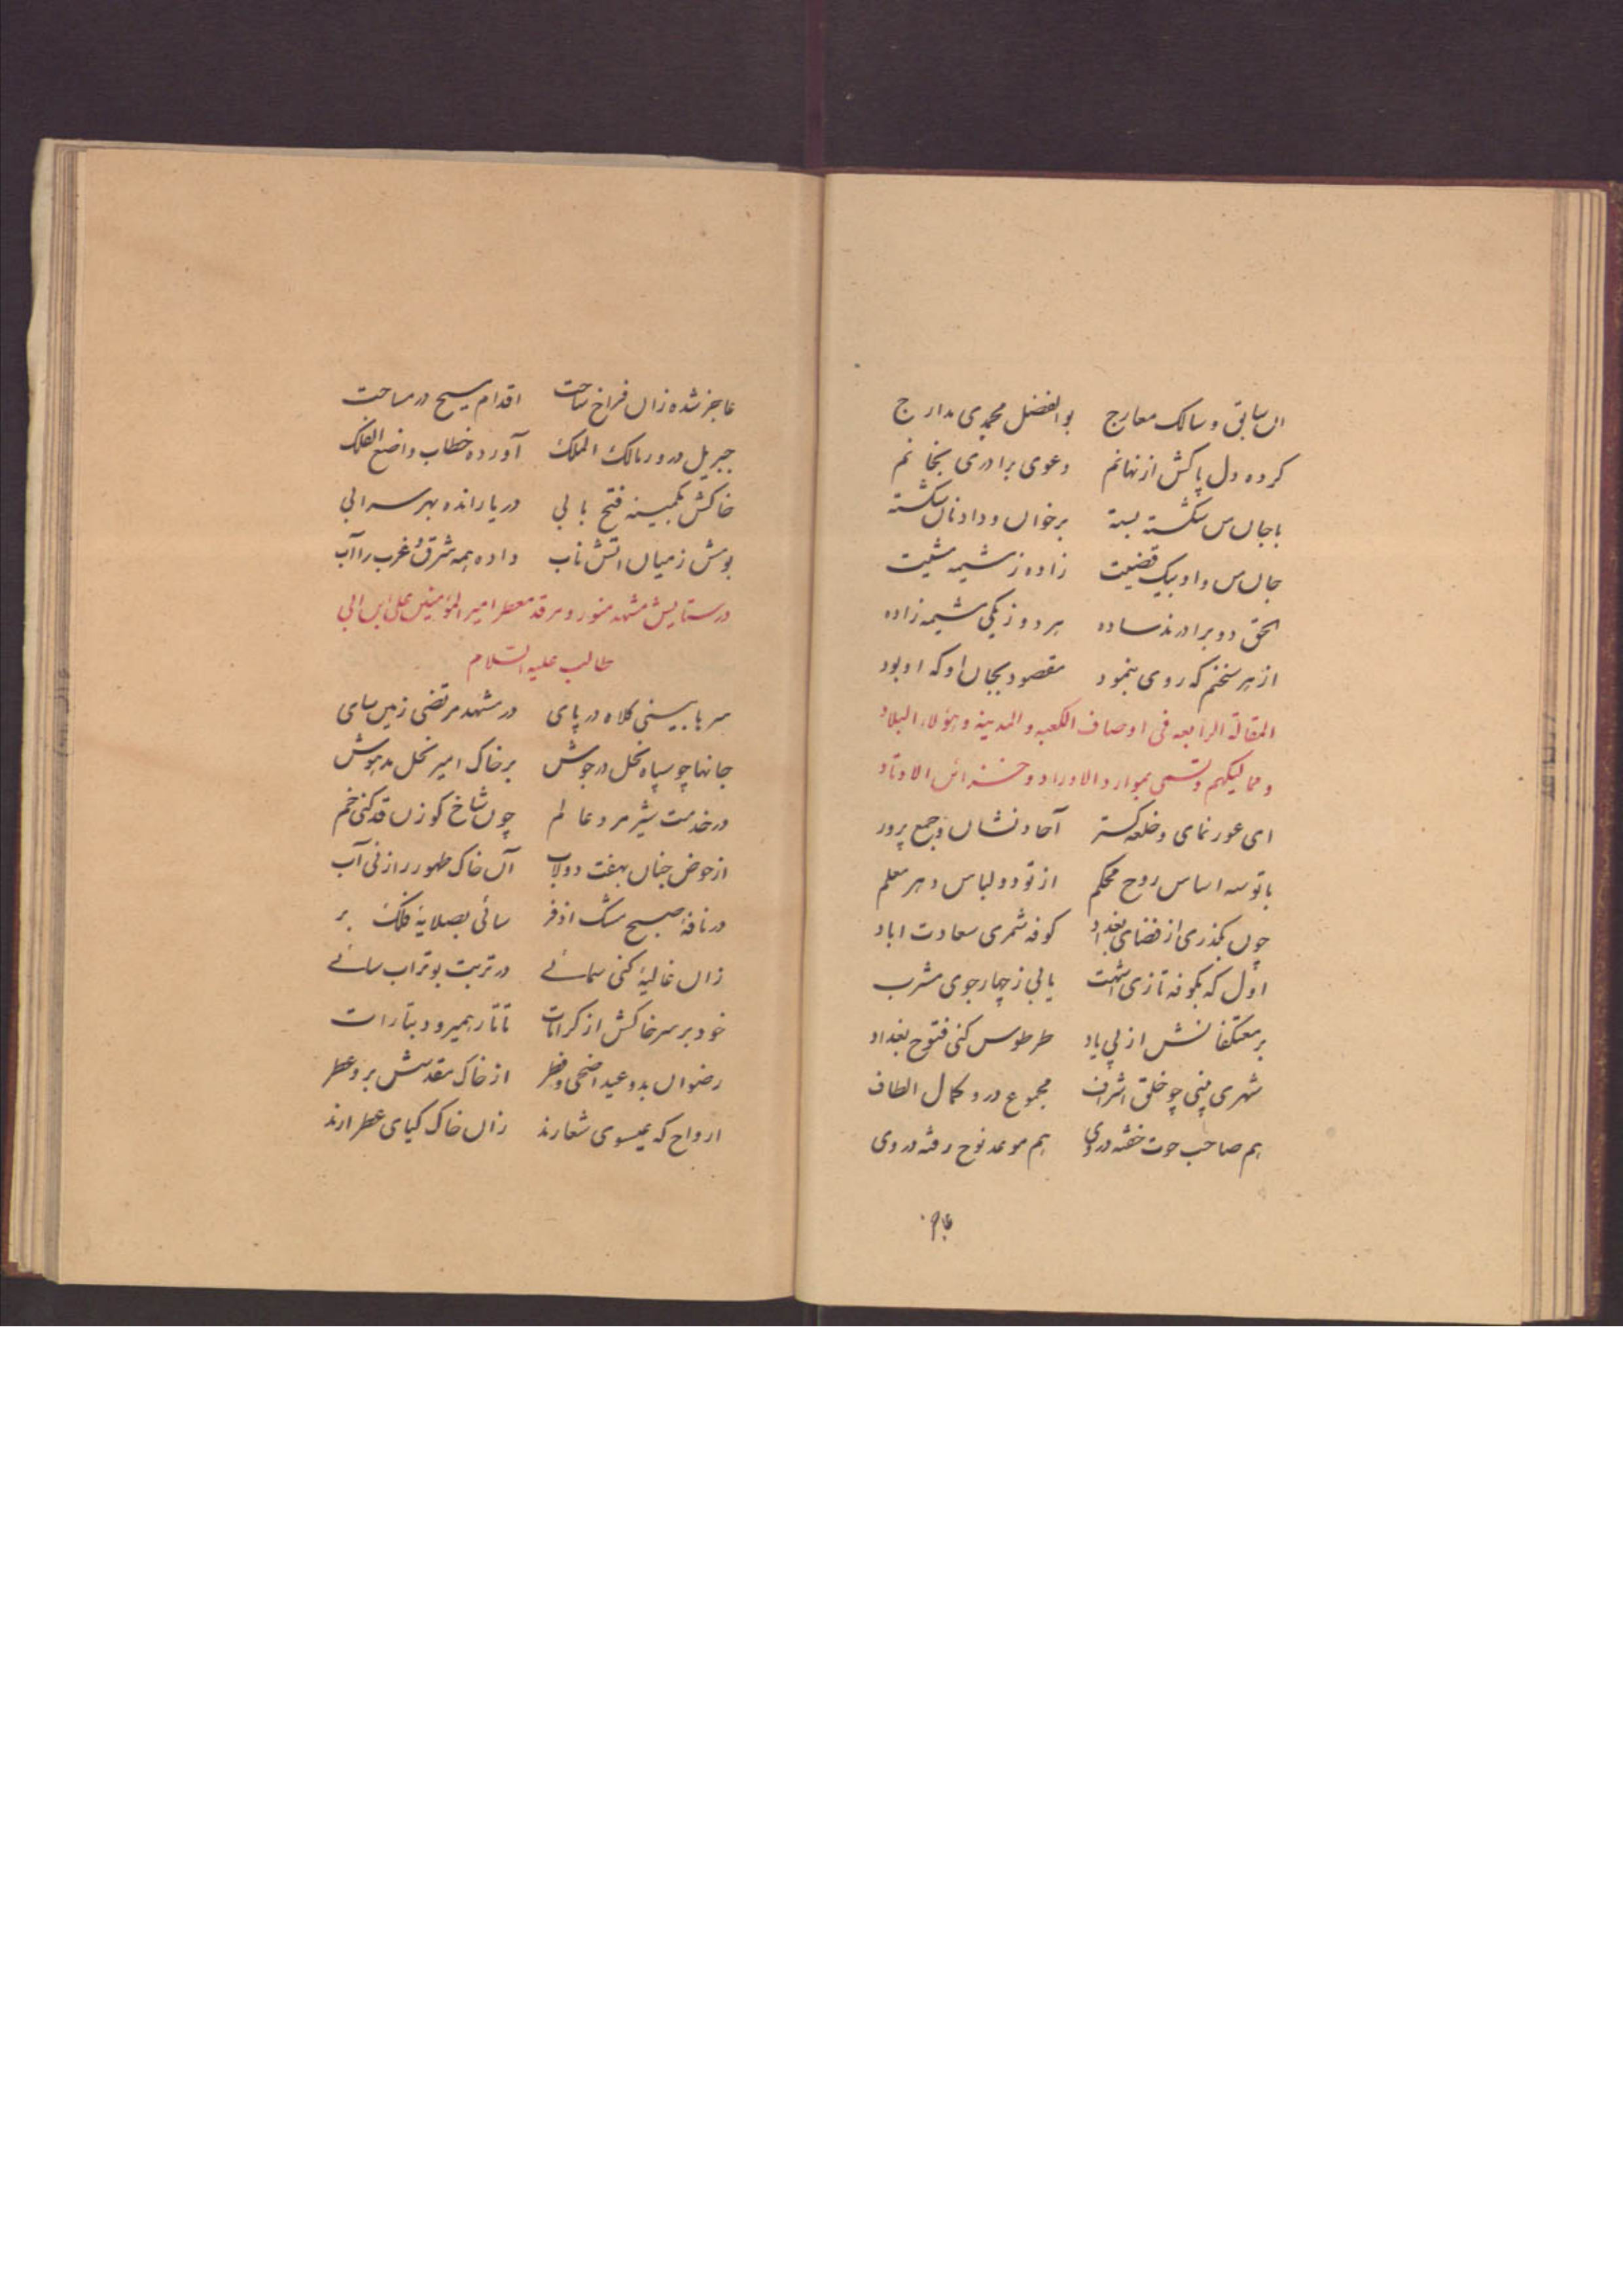 ان سابق و سالک معارج بوالفضل محمدی مدارج
کرده دل پاکش از نهانم دعوی برادری بجانم
با جان من شکسته بسته برخوان وداد نان شکسته
جان من و او بیک قضیت زاده ز مشیمه مشیت
الحق دو برادرند ساده هر دو ز یکی مشیمه زاده
از هر سخنم که روی بنمود مقصود بجان او که او بود
المقالة الرابعه فی اوصاف الکعبه و المدینه و هؤلاء البلاد
و ممالیکهم و تسمی بموارد الاوراد و خزائن الاوتاد
ای عور نمای و خلعه گستر آحاد نشان و جمع پرور
با تو سه اساس روح محکم از تو دو لباس دهر معلم
چون بگذری از فضای بغداد کوفه شمری سعادت اباد
اول که بکوفه تازی اشهب یابی ز چهار جوی مشرب
بر معتکفانش از پی یاد طرطوس کنی فتوح بغداد
شهری بینی چو خلق اشراف مجموع درو کمال الطاف
هم صاحب حوت خفته در وی هم موعد نوح رفته در وی
عاجز
عاجز شده زان فراخ ساحت اقدام مسیح در مساحت
جبریل درو ز مالک الملک آورده خطاب واضع الفلک
خاکش بکمینه فتح بابی دریا رانده بهر سرابی
بوش ز میان اتش ناب داده همه شرق و غرب را آب
در ستایش مشهد منور و مرقد معطر امیر المؤمنین علی بن ابی
طالب علیه السلام
سرها بینی کلاه در پای در مشهد مرتضی زمین سای
جانها چو سپاه نحل در جوش بر خاک امیر نحل مدهوش
در خدمت شیر مرد عالم چون شاخ گوزن قد کنی خم
از حوض جنان بهفت دولاب آن خاک طهور را زنی آب
در نافهٔ صبح مشک اذفر سائی بصلایهٔ فلک بر
زان غالیهٔ کنی سمائے در تربت بوتراب سائے
خود بر سر خاکش از کرامات تاتار همیرود بتارات
رضوان بدو عید اضحی و فطر از خاک مقدسش برد عطر
ارواح که عیسوی شعارند زان خاک گیای عطر ارند